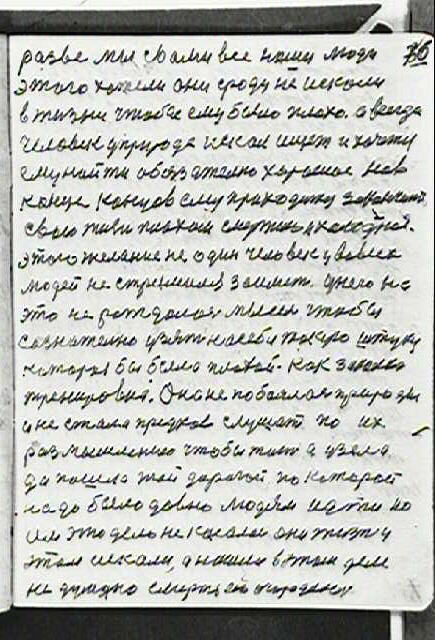 разве мы с вами все наши люди 75
этого хотели они сроду не искали
в жизни чтобы ему было плохо. а всегда
человек у природе искал ищет и хочет
ему найти обязательно хорошее но в
конце концов ему приходится
свою жизнь плохим смертью холодной.
этого желание не один человек у всех
людей не стремился у него на
это не рождалась мысль чтобы
сознательно взять на себя такую штуку
которая бы была плохой. как закалка
тренировка. Она не побоялася природы
и не стала предков слушать по их
размышлению чтобы а взяла
да пошла этой дорогой по которой
надо было давно людям идти но
им это дело не касалось они жизни у
этом искали, а нашли в этом деле
не нужно смерть